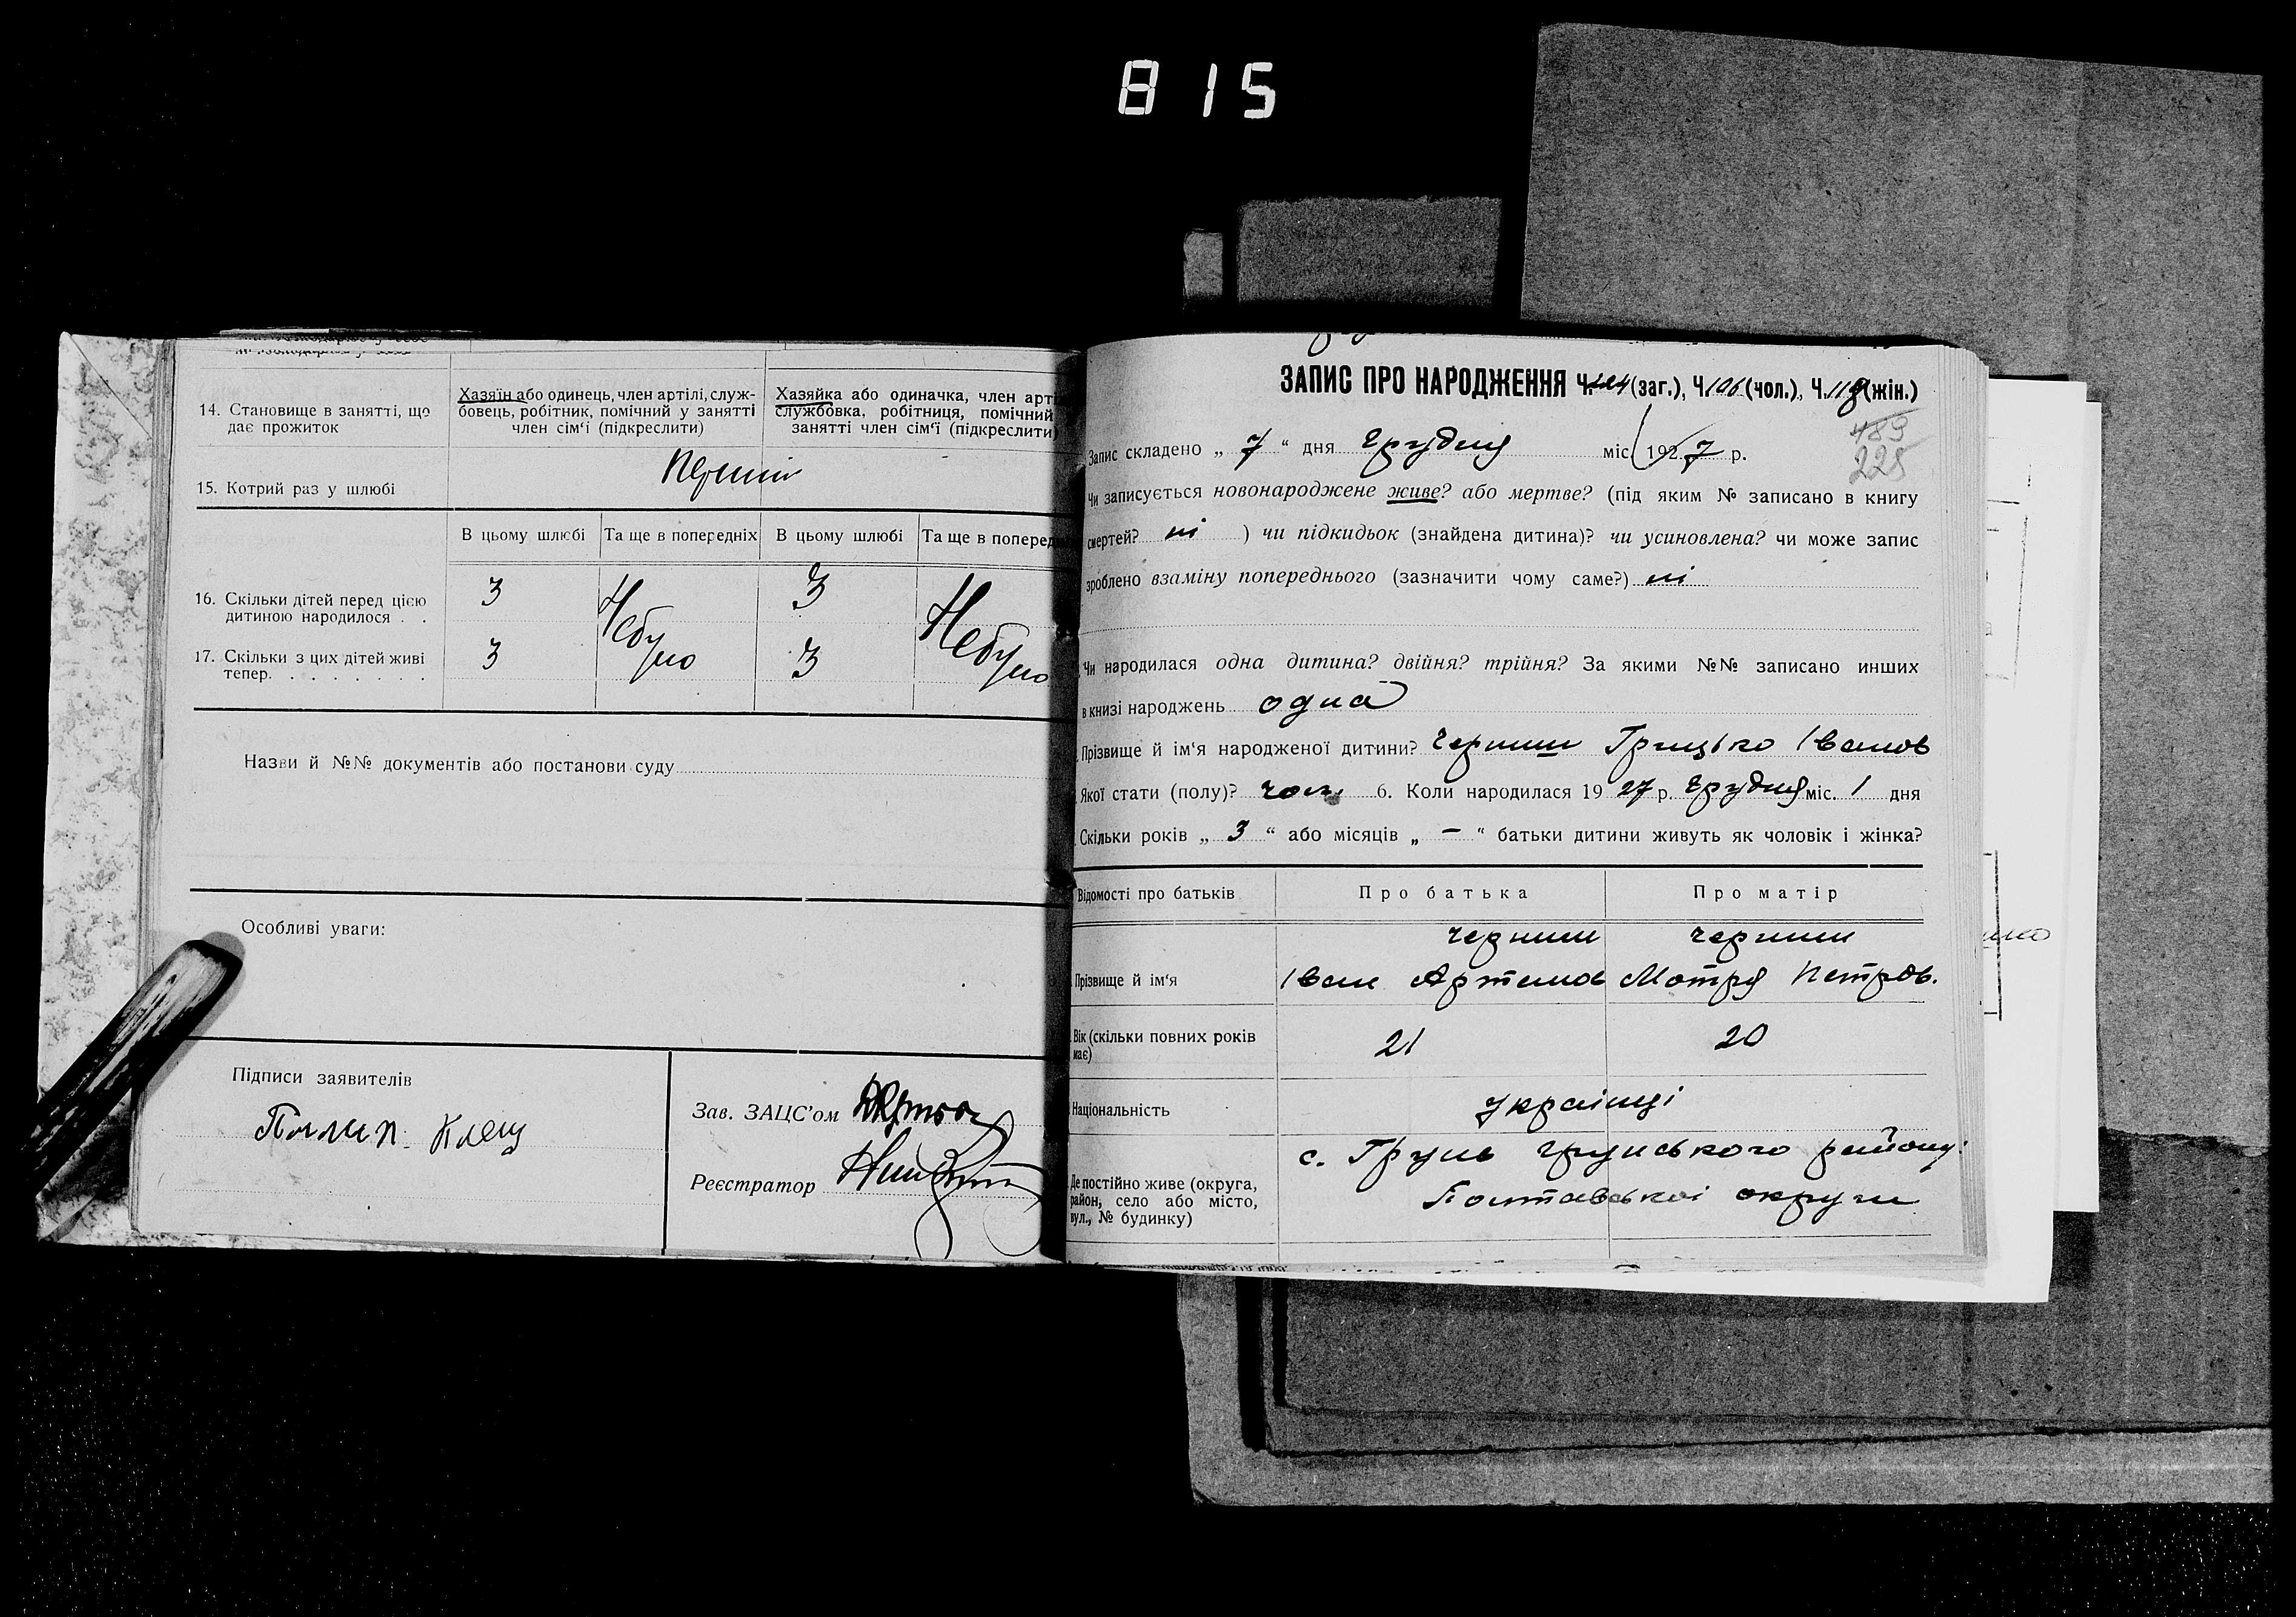 815
14. Становище в занятті, що дає прожиток
Хазяїн або одинець, член артілі, служ-
бовець, робітник, помічний у занятті
член сім'ї (підкреслити)
Хазяйка або одиначка, член арт
службовка, робітниця, помічний
занятті член сім'ї (підкреслити)
15. Котрий раз у шлюбі
В цьому шлюбі Та ще в попередніх В цьому шлюбі Та ще в поперед
16. Скільки дітей перед цією
дитиною народилося . . 3 Небуло 3 Небуло
17. Скільки з цих дітей живі
тепер. . . . . . . . 3 3
Назви й №№ документів або постанови суду
Особливі уваги:
Підписи заявителів
Зав. ЗАЦС'ом
Реєстратор
ЗАПИС ПРО НАРОДЖЕННЯ Ч. (заг.), Ч. 106 (чол.), Ч. 118 (жін.)
489
225
Запис складено „ 7 “ дня грудня міс. 1927 р.
Чи записується новонароджене живе? або мертве? (під яким № записано в книгу
смертей? ні ) чи підкидьок (знайдена дитина)? чи усиновлена? чи може запис
зроблено взаміну попереднього (зазначити чому саме?) ні
Чи народилася одна дитина? двійня? трійня? За якими №№ записано инших
в книзі народжень одна
Прізвище й ім'я народженої дитини? Черниш Грицько Іванов
Якої стати (полу)? чол. 6. Коли народилася 19 27 р. грудня міс. 1 дня
Скільки років „ 3 “ або місяців „ – “ батьки дитини живуть як чоловік і жінка?
Відомості про батьків Про батька Про матір
Черниш Черниш
Прізвище й ім'я Іван Артемов Мотря Петров.
Вік (скільки повних років має) 21 20
Національність українці
с. Грунь грунського району
Де постійно живе (округа,
район, село або місто,
вул., № будинку)
Полтавської округи